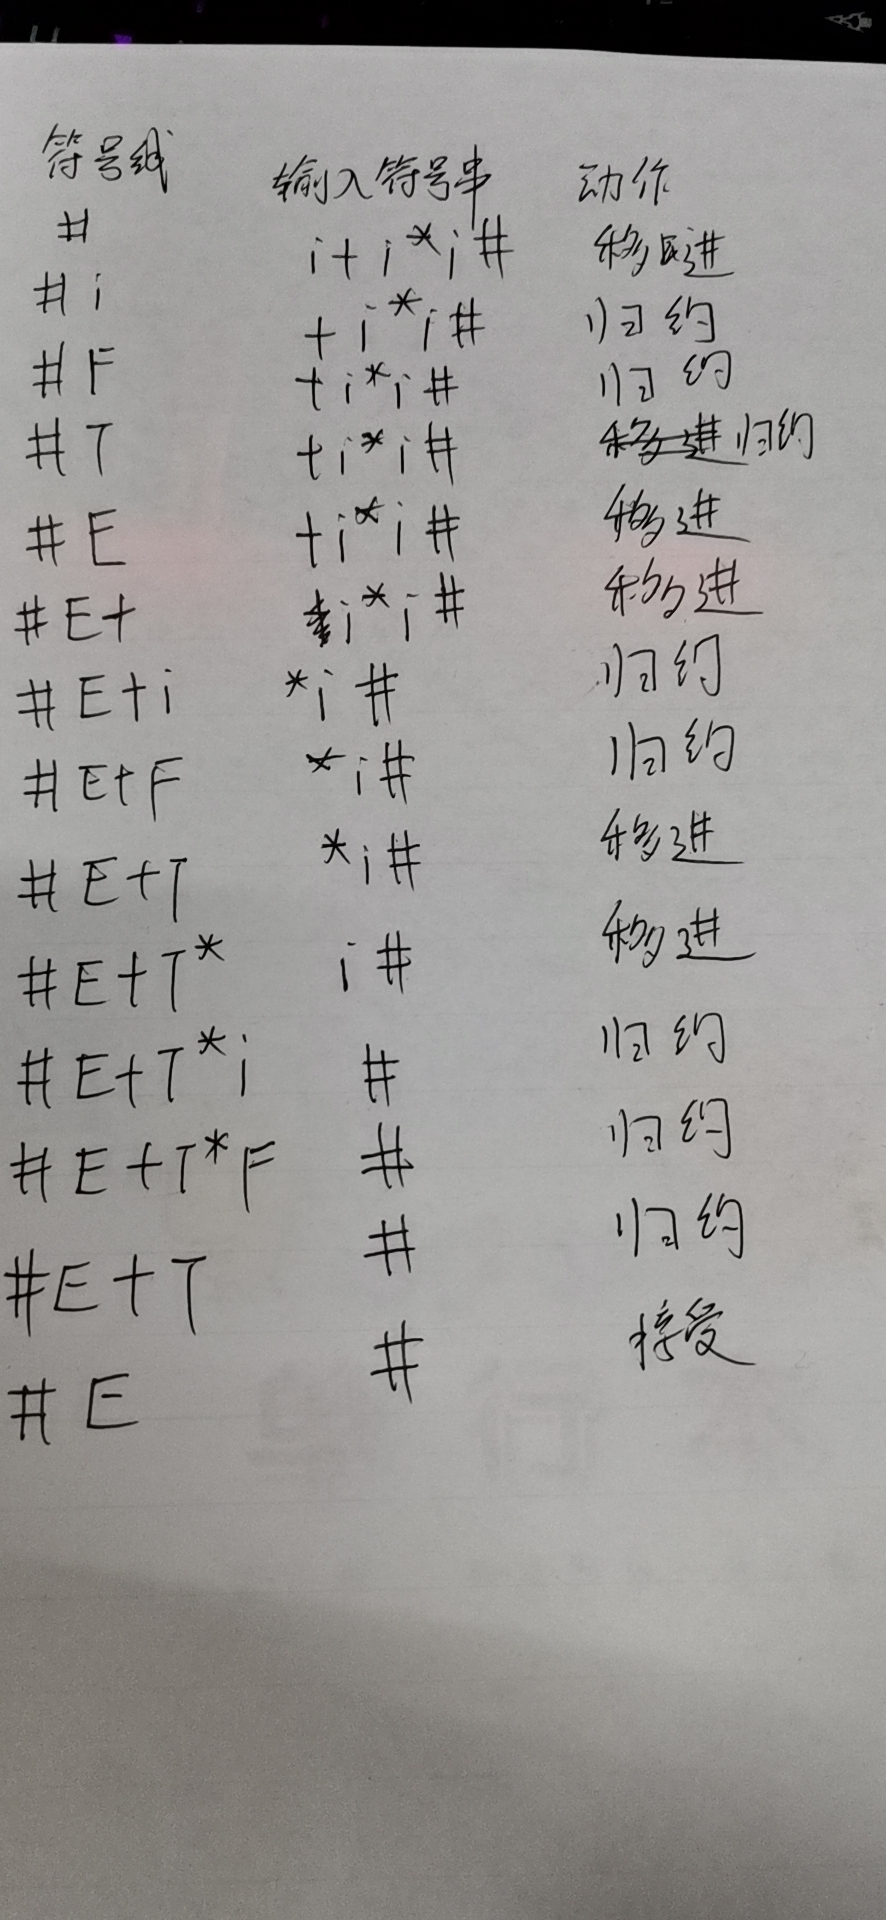 符号栈 输入符号串 动作
# i+i*i# 移进
#i +i*i# 归约
#F +i*i# 归约
#T +i*i# 归约
#E +i*i# 移进
#E+ i*i# 移进
#E+i *i# 归约
#E+F *i# 归约
#E+T *i# 移进
#E+T* i# 移进
#E+T*i # 归约
#E+T*F # 归约
#E+T # 归约
#E # 接受